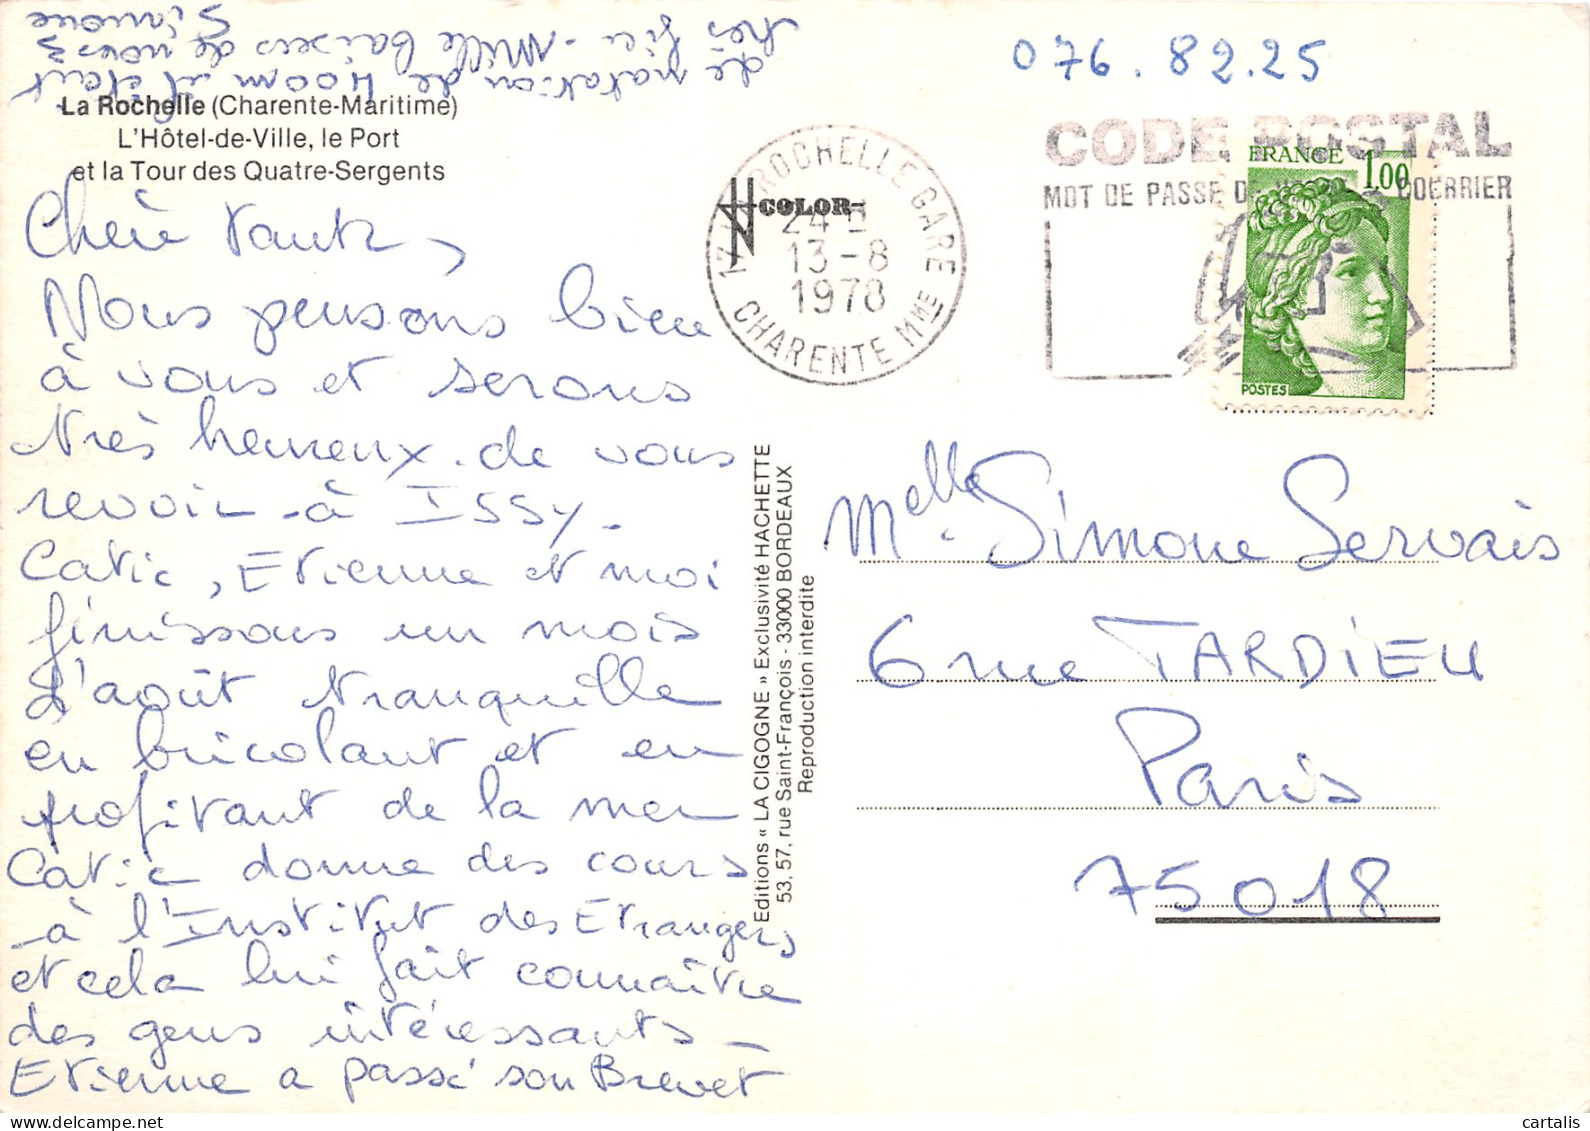 La Rochelle (Charente-Maritime)
L'Hôtel-de-Ville, le Port
et la Tour des Quatre-Sergents
Chère Tante,
Nous pensons bien
à vous et serons
très heureux de vous
revoir à ISSY.
Catie, Etienne et moi
finissons un mois
d'août tranquille
en bricolant et en
profitant de la mer
Catie donne des cours
à l'Institut des Etrangers
et cela lui fait connaître
des gens intéressants -
Etienne a passé son Brevet
de natation de 400m il était
très fier - Mille baisers de nous 3
Simone
Editions « LA CIGOGNE » Exclusivité HACHETTE
53, 57, rue Saint-François - 33000 BORDEAUX
Reproduction interdite
COLOR
17 LA ROCHELLE GARE
24 H
13-8
1978
CHARENTE MME
076.82.25
CODE POSTAL
MOT DE PASSE DE COURRIER
FRANCE 1,00
POSTES
Melle Simone Servais
6 rue TARDIEU
Paris
75018
cartalis